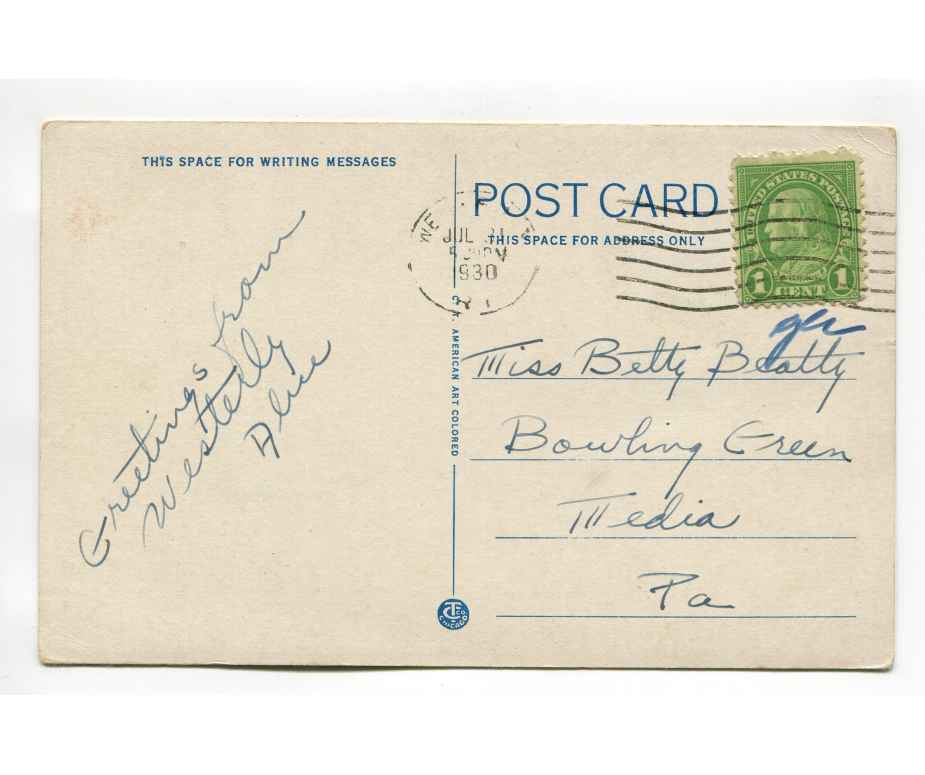 THIS SPACE FOR WRITING MESSAGES
Greetings from
Westerly
POST CARD
THIS SPACE FOR ADDRESS ONLY
JUL 31
1930
R I
UNITED STATES POSTAGE
1 CENT 1
Miss Betty Beatty
Bowling Green
Media
Pa
C. T. AMERICAN ART COLORED
CT CO
CHICAGO